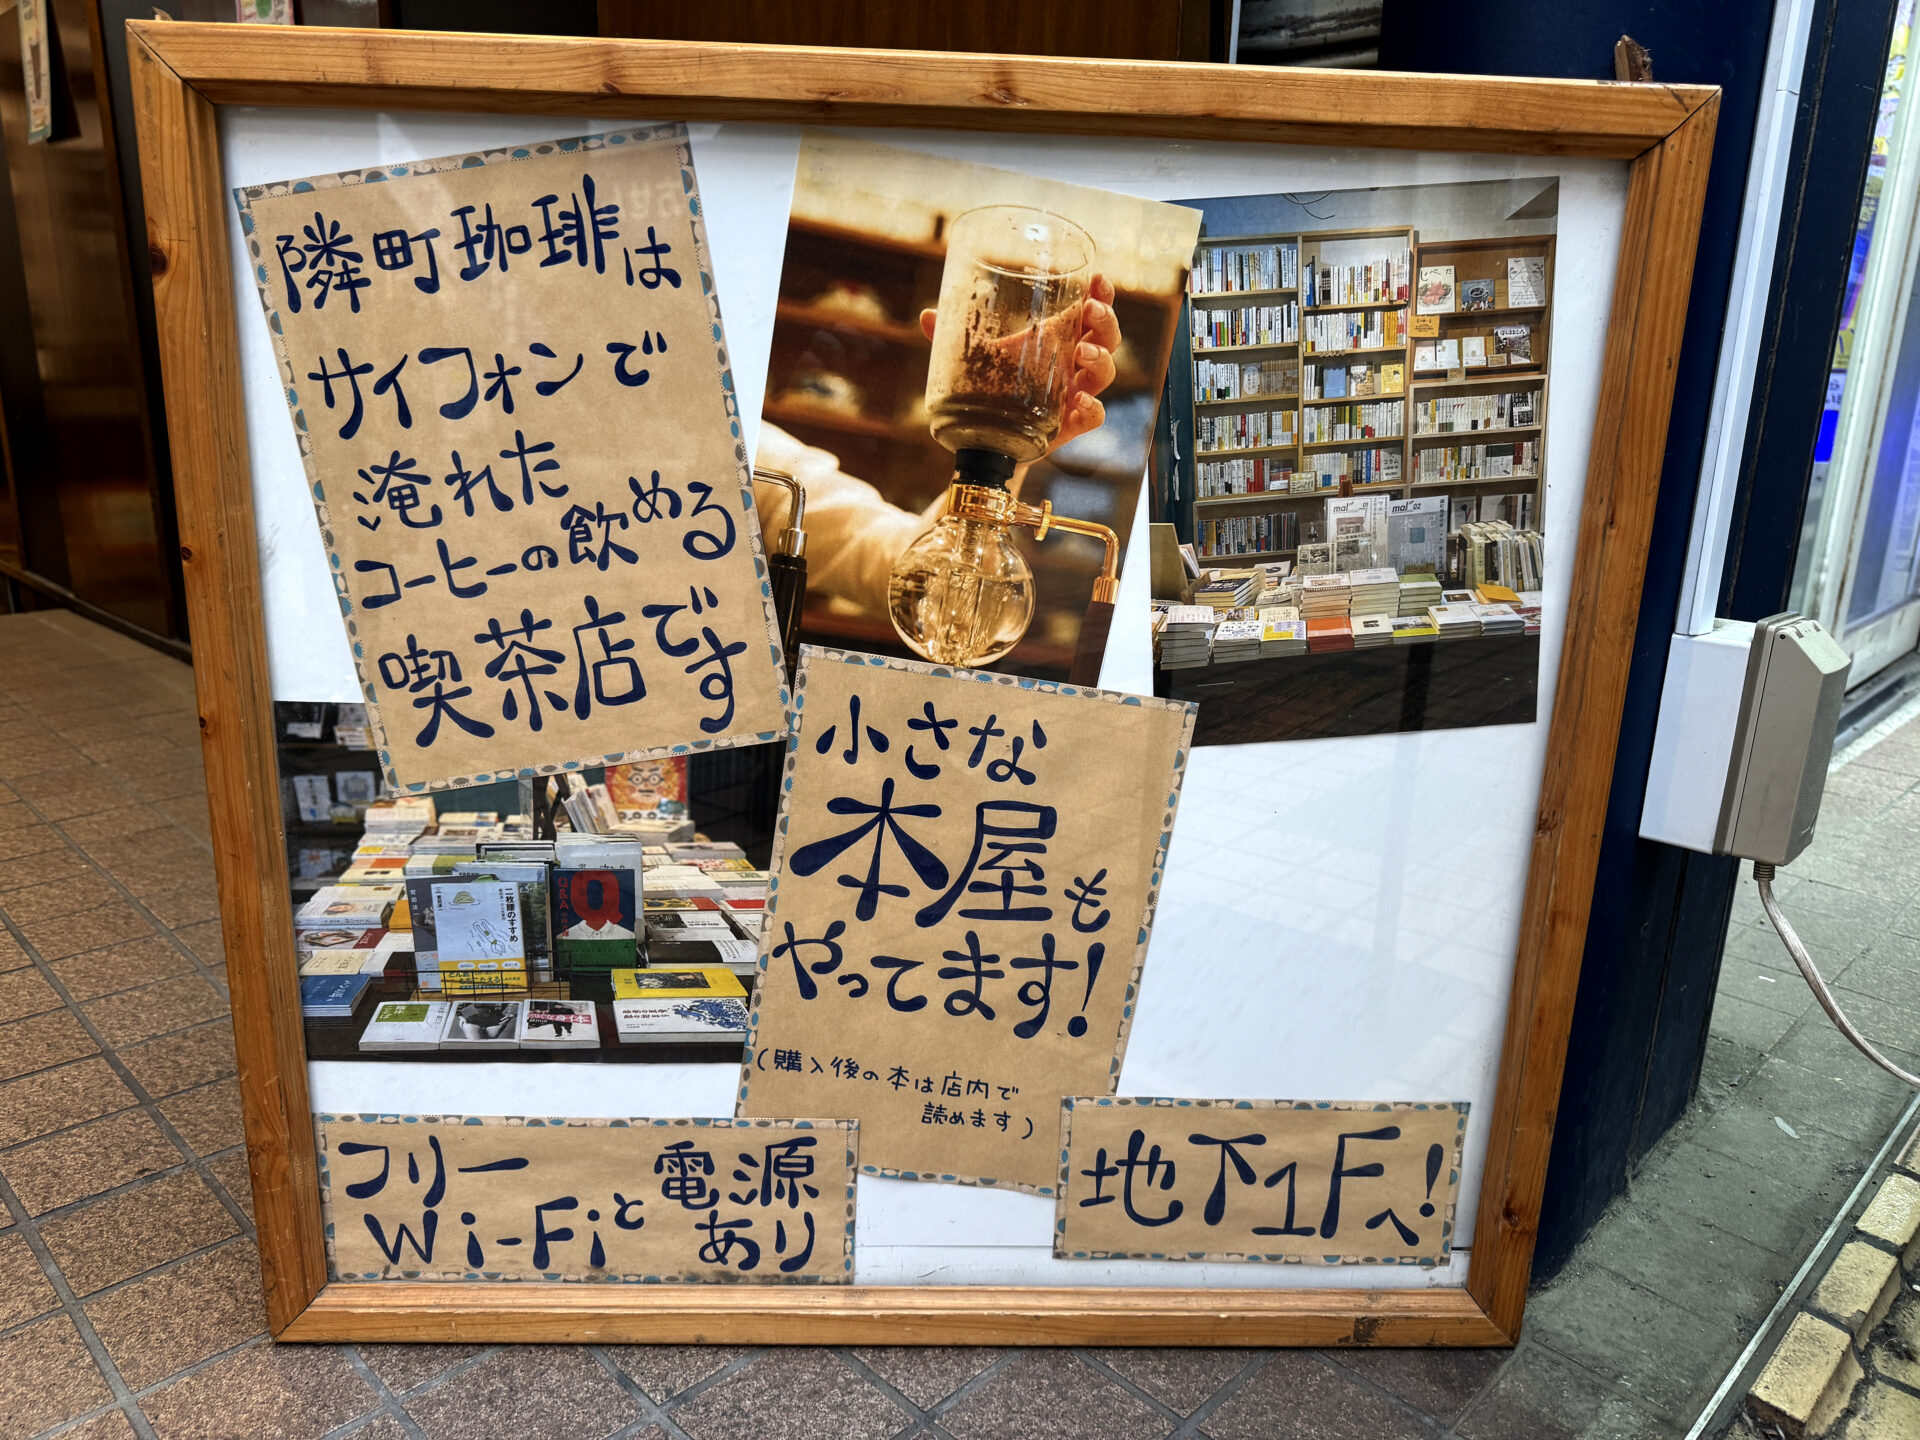 隣町珈琲は
サイフォンで
淹れた
コーヒーの飲める
喫茶店です
mal" 01
mal" 02
小さな
本屋も
やってます!
(購入後の本は店内で
読めます)
二枚腰のすすめ
Q&A
フリー
Wi-Fiと電源
あり
地下1Fへ!